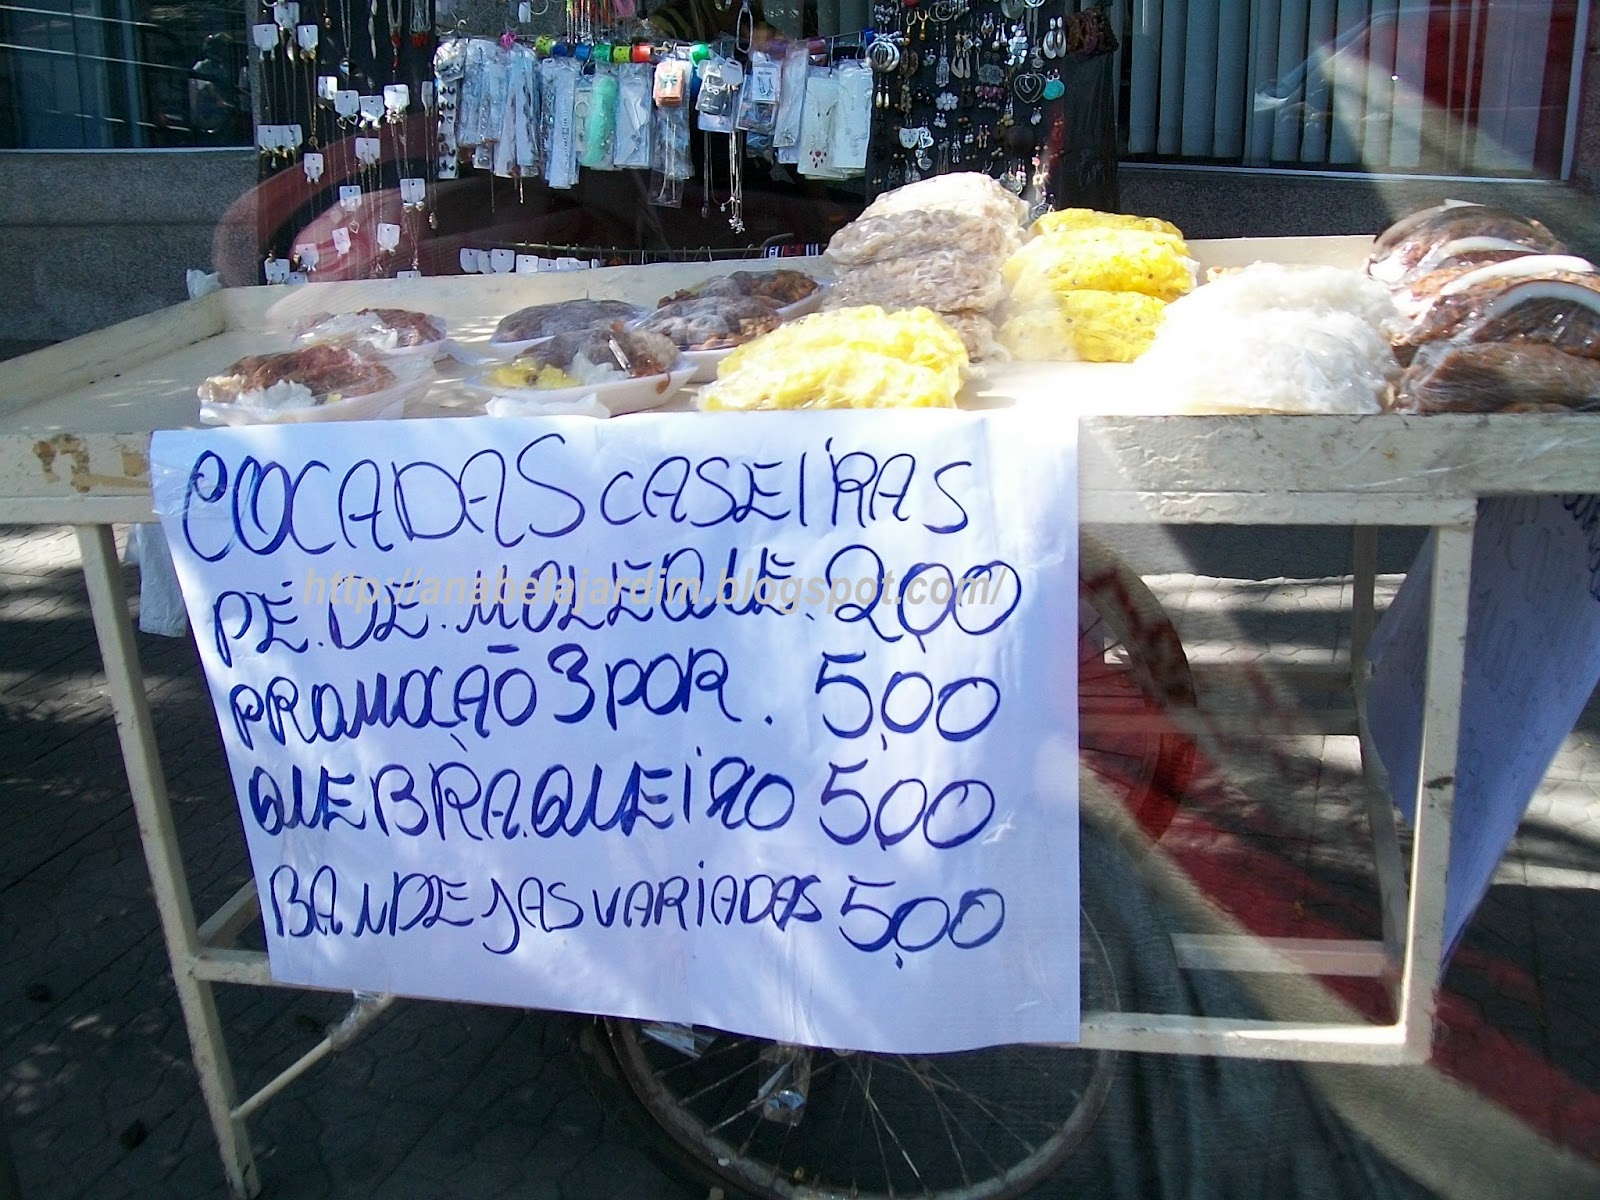 COCADAS CASEIRAS
PÉ.DE.MOLEQUE.2,00
http://anabelajardim.blogspot.com/
PROMOÇÃO 3 POR. 5,00
QUEBRA.QUEIXO 5,00
BANDEJAS VARIADAS 5,00